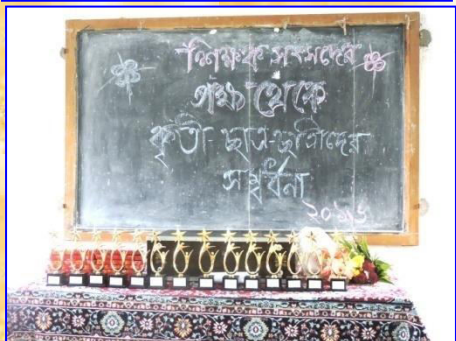 শিক্ষক সংসদের
পক্ষ থেকে
কৃতী-ছাত্র-ছাত্রীদের
সম্বর্ধনা
২০১৬